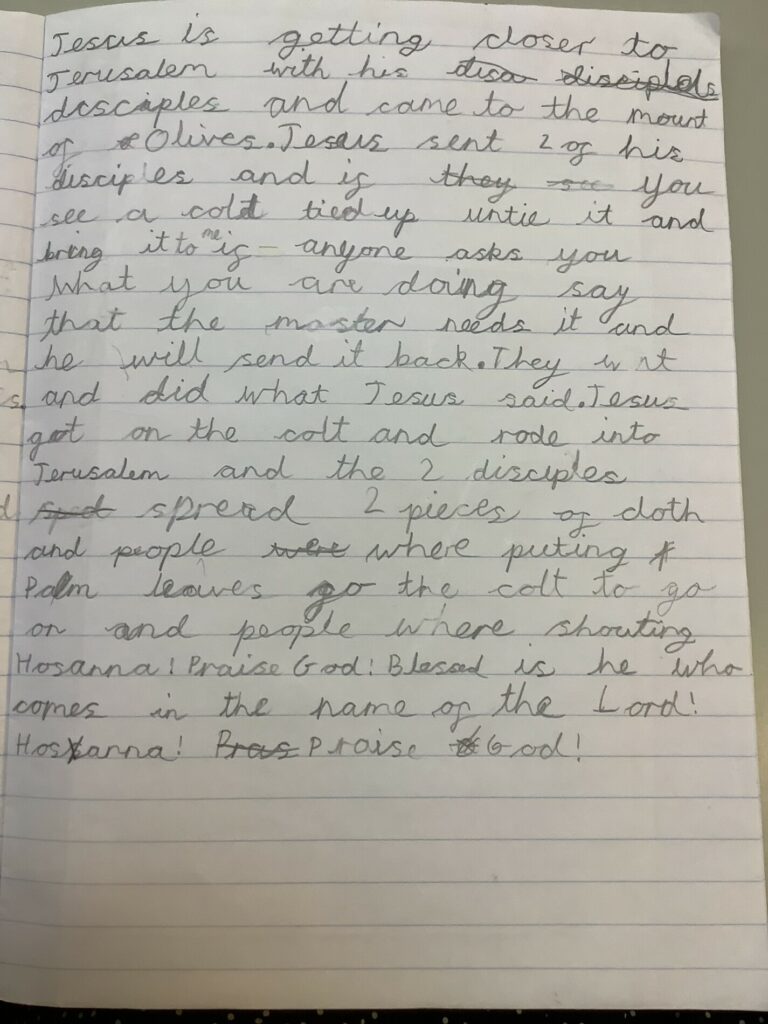 Jesus is getting closer to
Jerusalem with his disa disciplels
desciples and came to the mount
of Olives. Jesus sent 2 of his
disciples and if they see you
see a colt tied up untie it and
bring it to me if anyone asks you
what you are doing say
that the master needs it and
he will send it back. They wnt
and did what Jesus said. Jesus
got on the colt and rode into
Jerusalem and the 2 disciples
spread 2 pieces of cloth
and people were where puting
Palm leaves go the colt to go
on and people where shouting
Hosanna! Praise God! Blessed is he who
comes in the name of the Lord!
Hosanna! Pras Praise God!